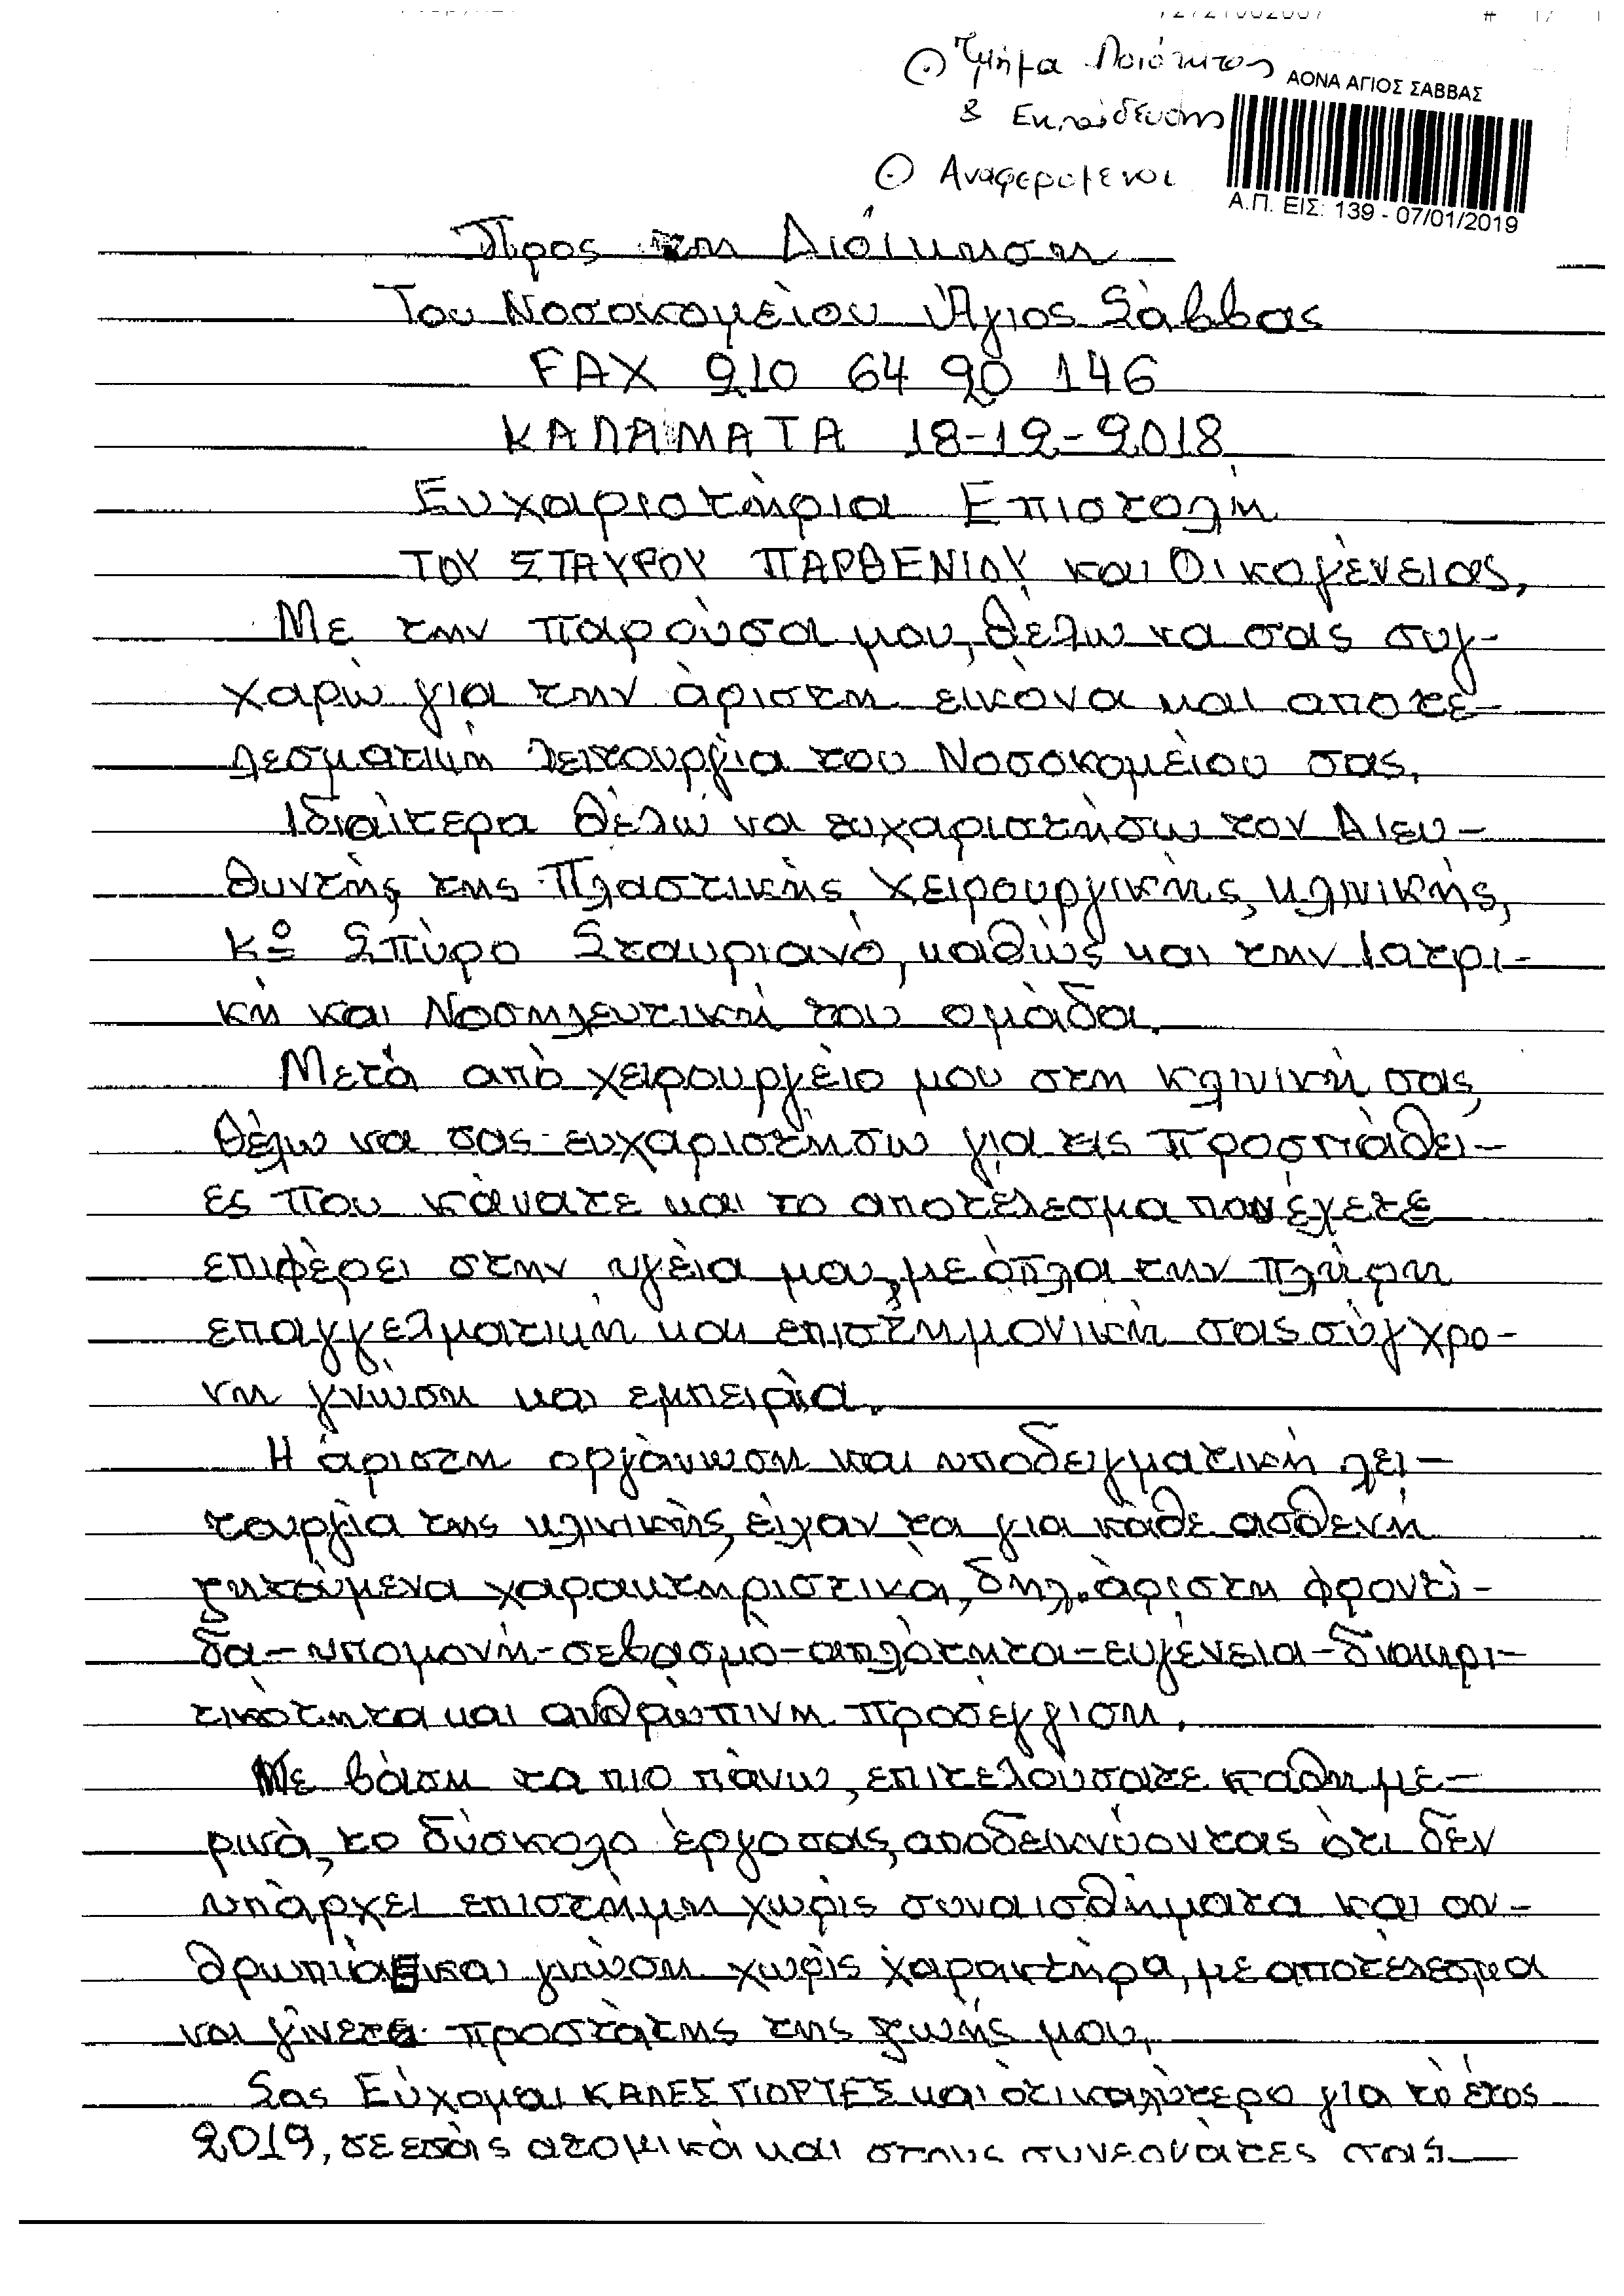 ⊙ Τμήμα Ποιότητος
& Εκπαίδευσης
⊙ Αναφερόμενοι
ΑΟΝΑ ΑΓΙΟΣ ΣΑΒΒΑΣ
Α.Π. ΕΙΣ: 139 - 07/01/2019
Προς τη Διοίκηση
Του Νοσοκομείου Άγιος Σάββας
FAX 210 64 20 146
ΚΑΛΑΜΑΤΑ 18-12-2018
Ευχαριστήρια Επιστολή
ΤΟΥ ΣΤΑΥΡΟΥ ΠΑΡΘΕΝΙΟΥ και Οικογένειας,
Με την παρούσα μου, θέλω να σας συγ-
χαρώ για την άριστη εικόνα και αποτε-
λεσματική λειτουργία του Νοσοκομείου σας.
Ιδιαίτερα θέλω να ευχαριστήσω τον Διευ-
θυντής της Πλαστικής Χειρουργικής, κλινικής,
Κο Σπύρο Σταυριανό, καθώς και την Ιατρι-
κή και Νοσηλευτική του ομάδα.
Μετά από χειρουργείο μου στη κλινική σας,
θέλω να σας ευχαριστήσω για τις προσπάθει-
ες που κάνατε και το αποτέλεσμα που έχετε
επιφέρει στην υγεία μου, με όπλα την πλήρη
επαγγελματική και επιστημονική σας σύγχρο-
νη γνώση και εμπειρία.
Η άριστη οργάνωση και υποδειγματική λει-
τουργία της κλινικής, είχαν τα για κάθε ασθενή
ζητούμενα χαρακτηριστικά, δηλ. άριστη φροντί-
δα-υπομονή-σεβασμό-απλότητα-ευγένεια-διακρι-
τικότητα και ανθρώπινη προσέγγιση.
Με βάση τα πιο πάνω, επιτελούσατε καθημε-
ρινά, το δύσκολο έργο σας, αποδεικνύοντας ότι δεν
υπάρχει επιστήμη χωρίς συναισθήματα και αν-
θρωπιά και γνώση χωρίς χαρακτήρα, με αποτέλεσμα
να γίνετε προστάτης της ζωής μου.
Σας Εύχομαι ΚΑΛΕΣ ΓΙΟΡΤΕΣ και ότι καλύτερο για το έτος
2019, σε εσάς ατομικά και στους συνεργάτες σας.